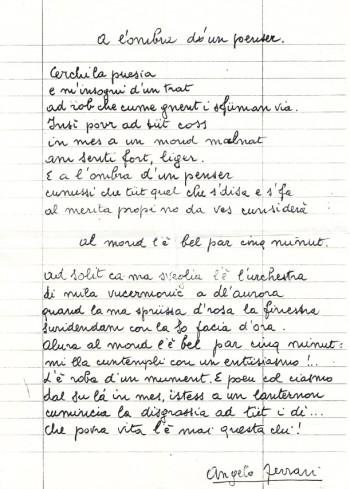 A l'ombra d'un penser.
Cerchi la puesia
e m'insogni d'un trat
ad rob che cume gnent i sfüman via.
Insì povr ad tüt coss
in mes a un mond malnat
am senti fort, liger.
E a l'ombra d'un penser
cunussi che tüt quel che s'disa e s'fa
al merita propi no da ves cunsiderà
Al mond l'è bel par cinq minut.
Ad solit ca ma sveglia l'è l'urchestra
di mila vucermonic a dl'aurora
quand la ma sprussa d'rosa la finestra
suridendam con la so facia d'ora.
Alura al mond l'è bel par cinq minut:
mi lla cuntempli con un entusiasmo!..
L'è roba d'un mument. E poeu col ciasmo
dal su là in mes, istess a un lanternon
cumincia la disgrassia ad tüt i dì...
che povra vita l'è mai questa chi!
Angelo Ferrari